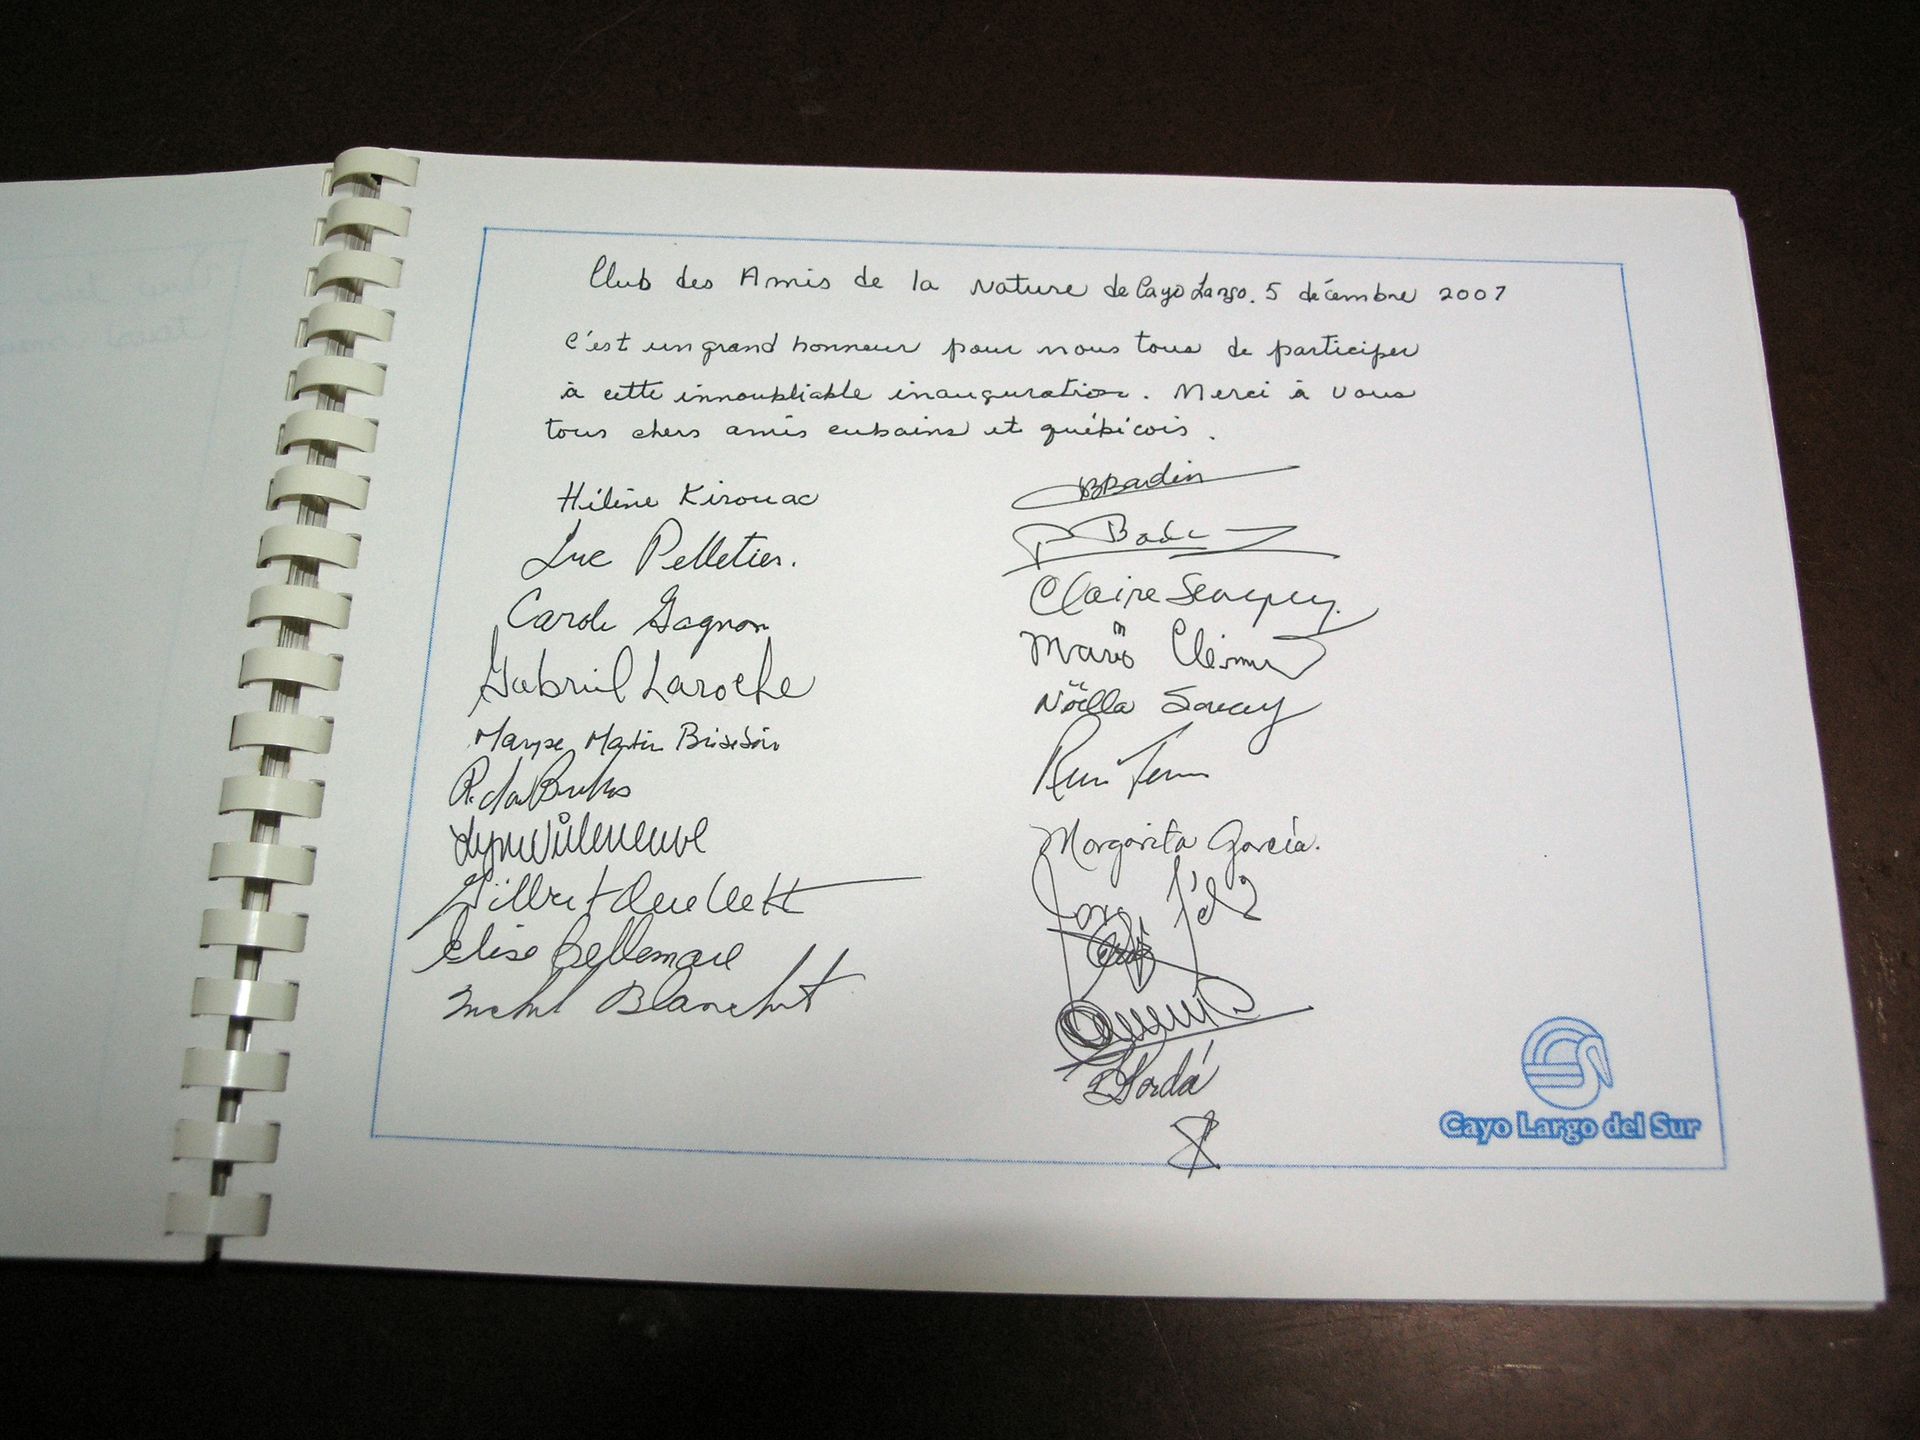 Club des Amis de la Nature de Cayo Largo. 5 décembre 2007
C'est un grand honneur pour nous tous de participer
à cette innoubliable inauguration. Merci à vous
tous chers amis cubains et québécois.
Hélène Kirouac
Luc Pelletier.
Carole Gagnon
Gabriel Laroche
Maryse Martin Brisebois
Lyne Villeneuve
Gilbert Ouellett
Élise Bellemare
Michel Blanchet
Claire
Mario
Nöella Soucy
Margarita García.
Jordá
Cayo Largo del Sur